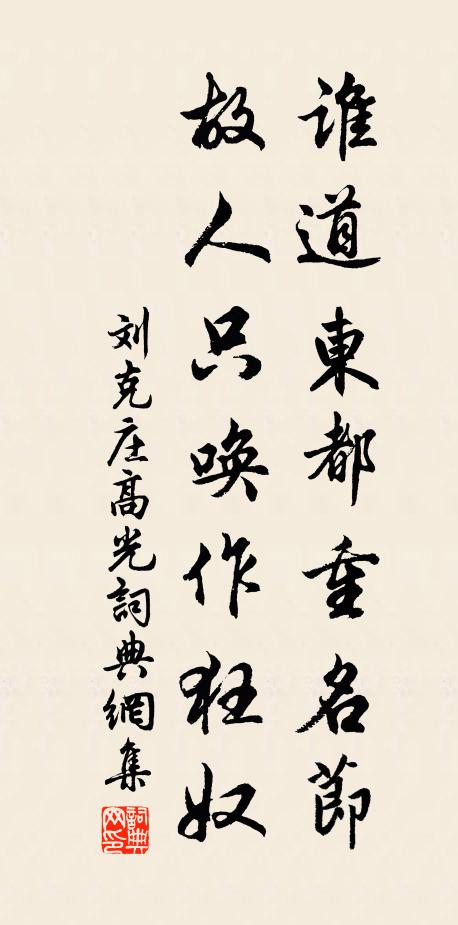 誰道東都重名節
故人只唤作狂奴
刘克庄高光詞典網集
詞典
网印